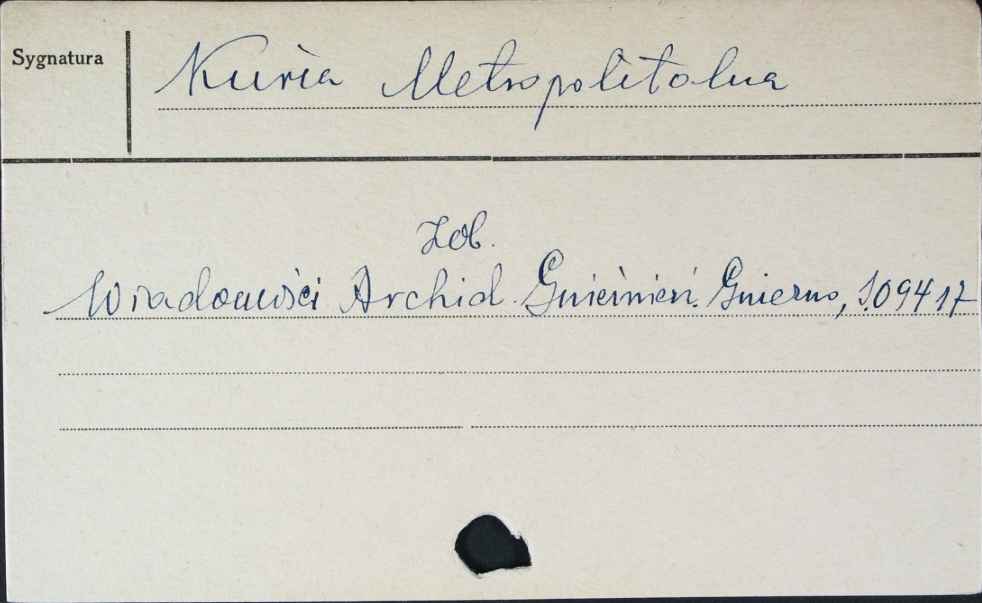 Sygnatura
Kuria Metropolitalna
Zob.
Wiadomości Archid. Gnieźnień. Gniezno, 109417